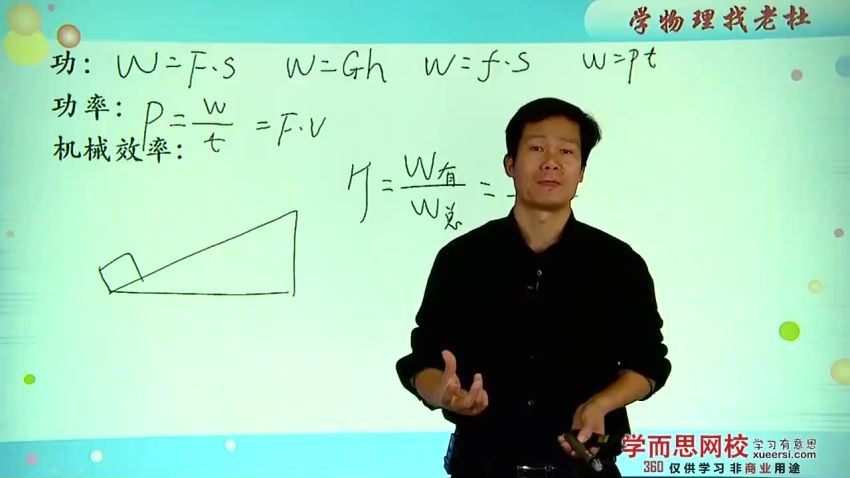 学物理找老杜
功: W=F·s W=Gh W=f·s W=pt
功率: P=W/t =F·V
机械效率:
η=W有/W总=
学而思网校 学习有意思
xueersi.com
360 仅供学习 非商业用途